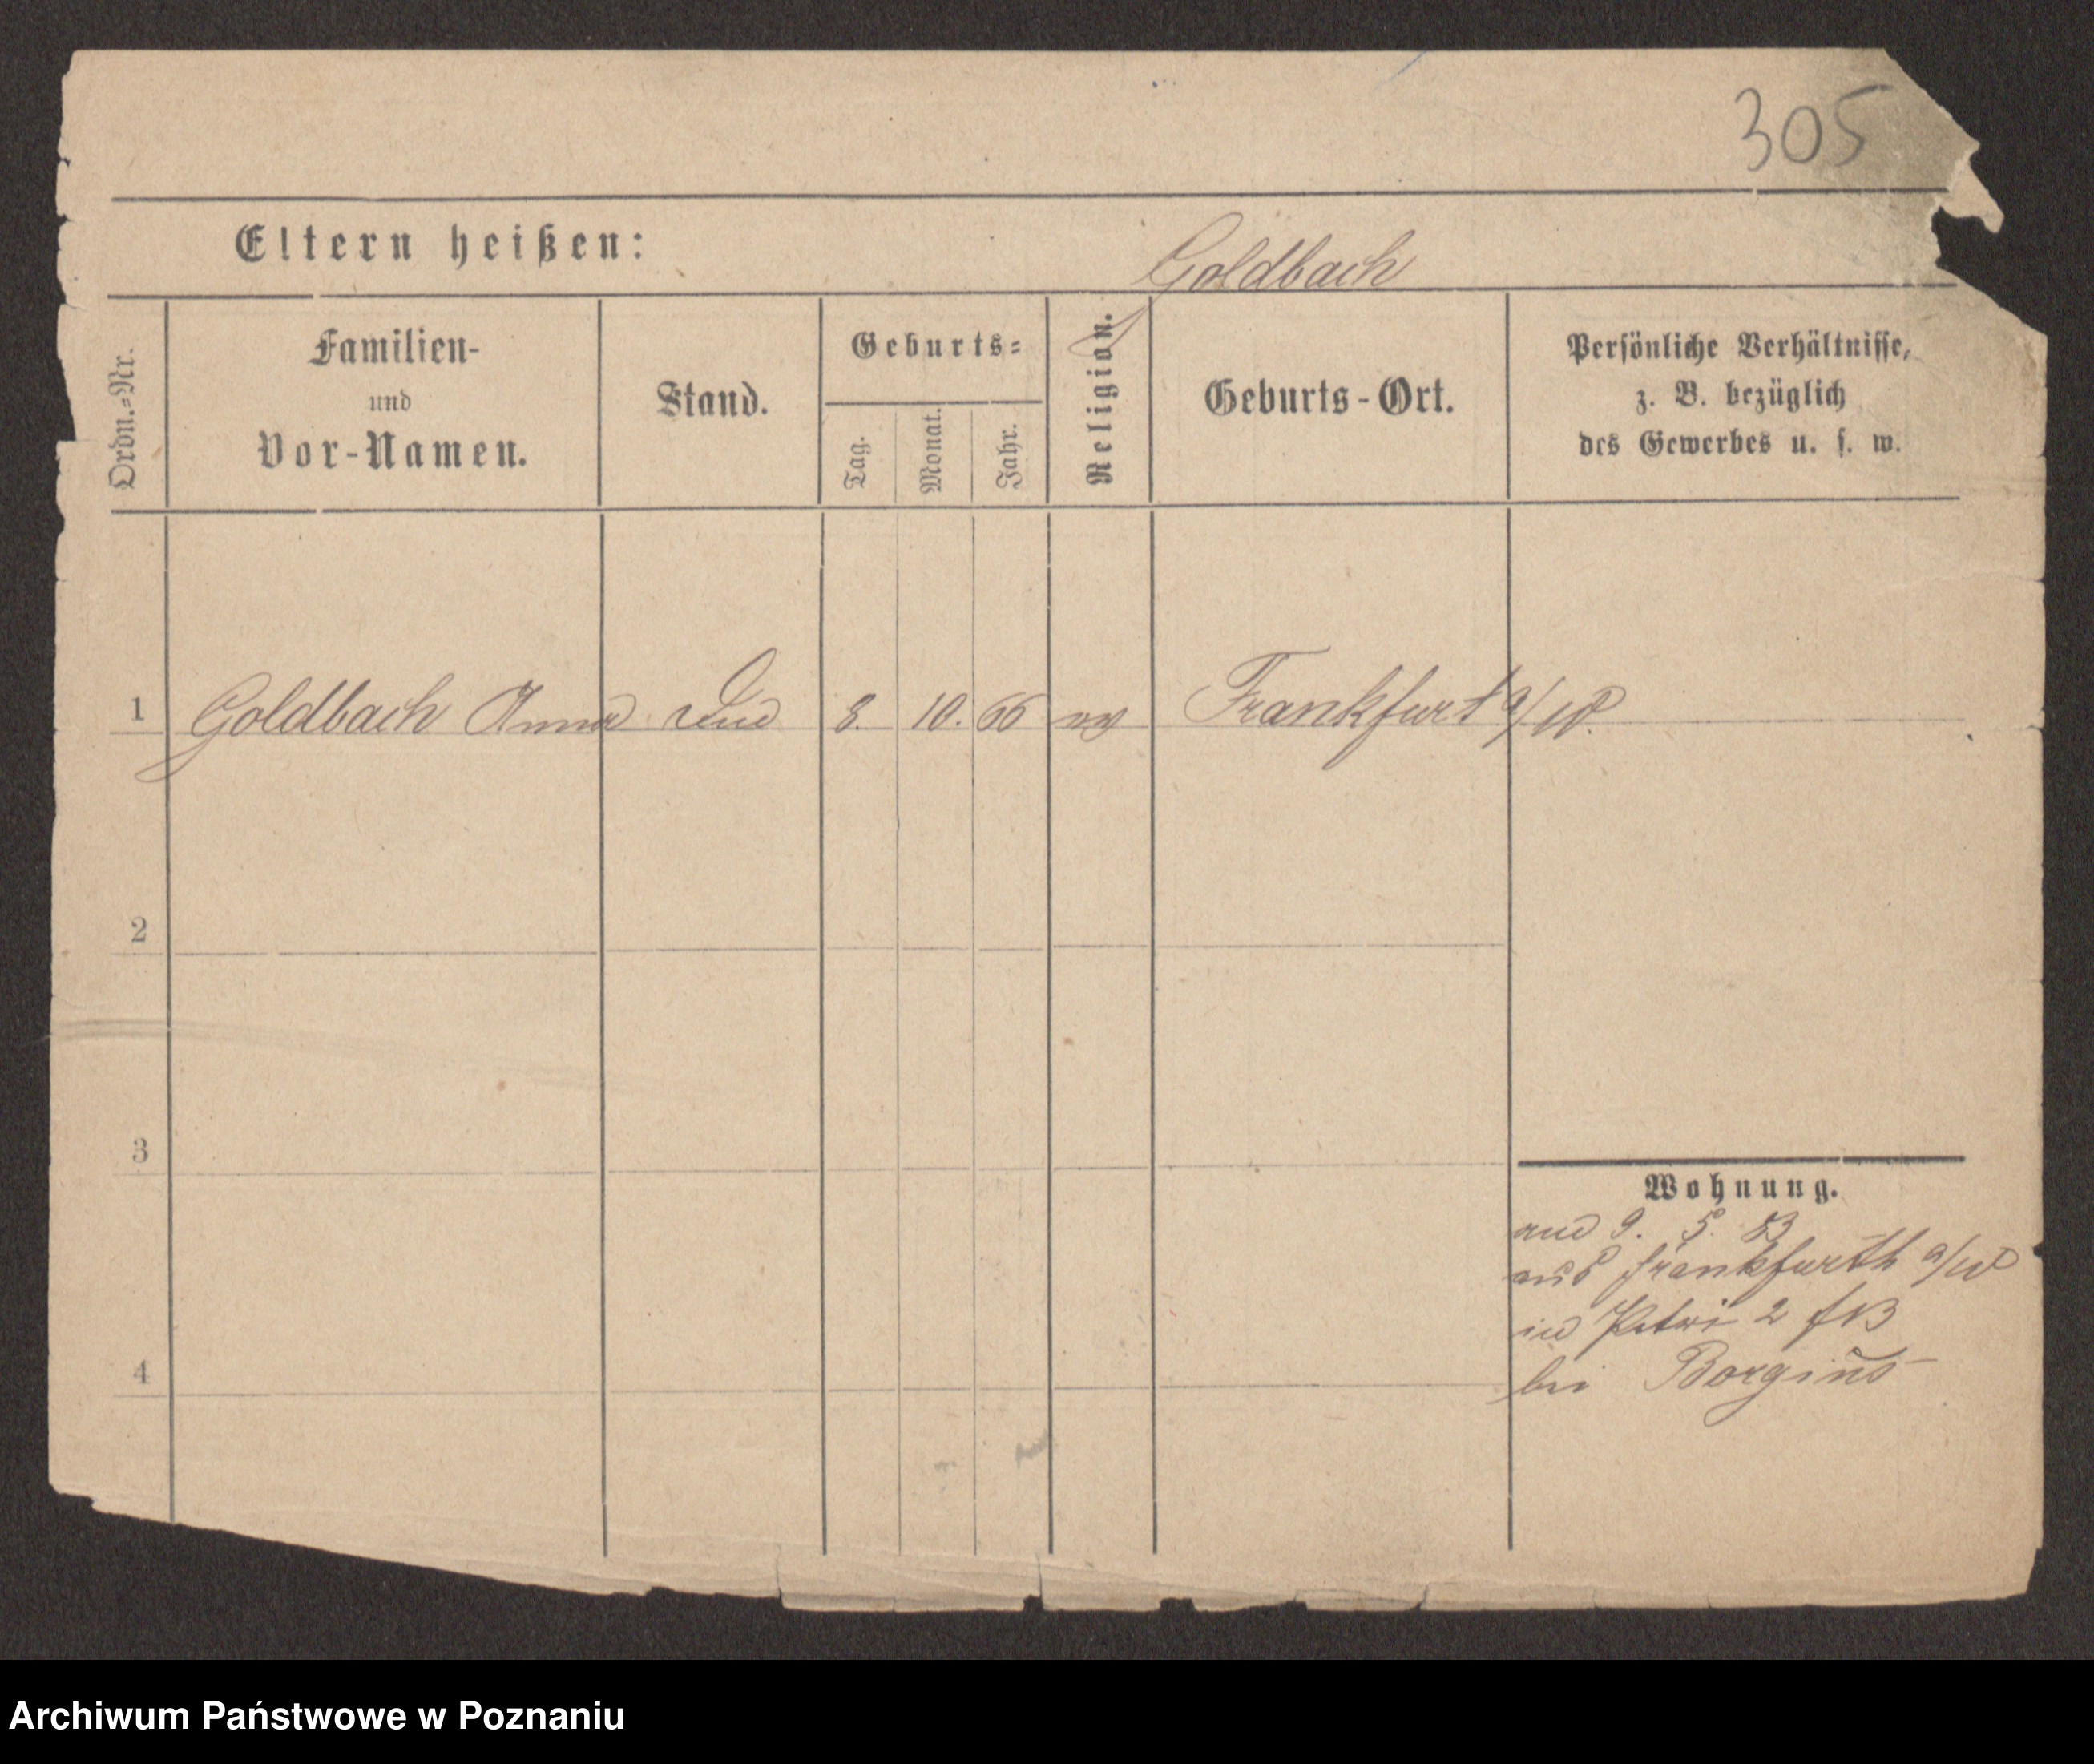 305
Eltern heißen:
Goldbach
Ordn.-Nr.
Familien-
und
Vor-Namen.
Stand.
Geburts-
Tag.
Monat.
Jahr.
Religion.
Geburts-Ort.
Persönliche Verhältnisse,
z. B. bezüglich
des Gewerbes u. s. w.
1 Goldbach Anna 8. 10. 66 ev Frankfurt a/O.
2
3
Wohnung.
9. 5. 83
aus Frankfurth a/O
in Petri 2
4
bei Borgius
Archiwum Państwowe w Poznaniu